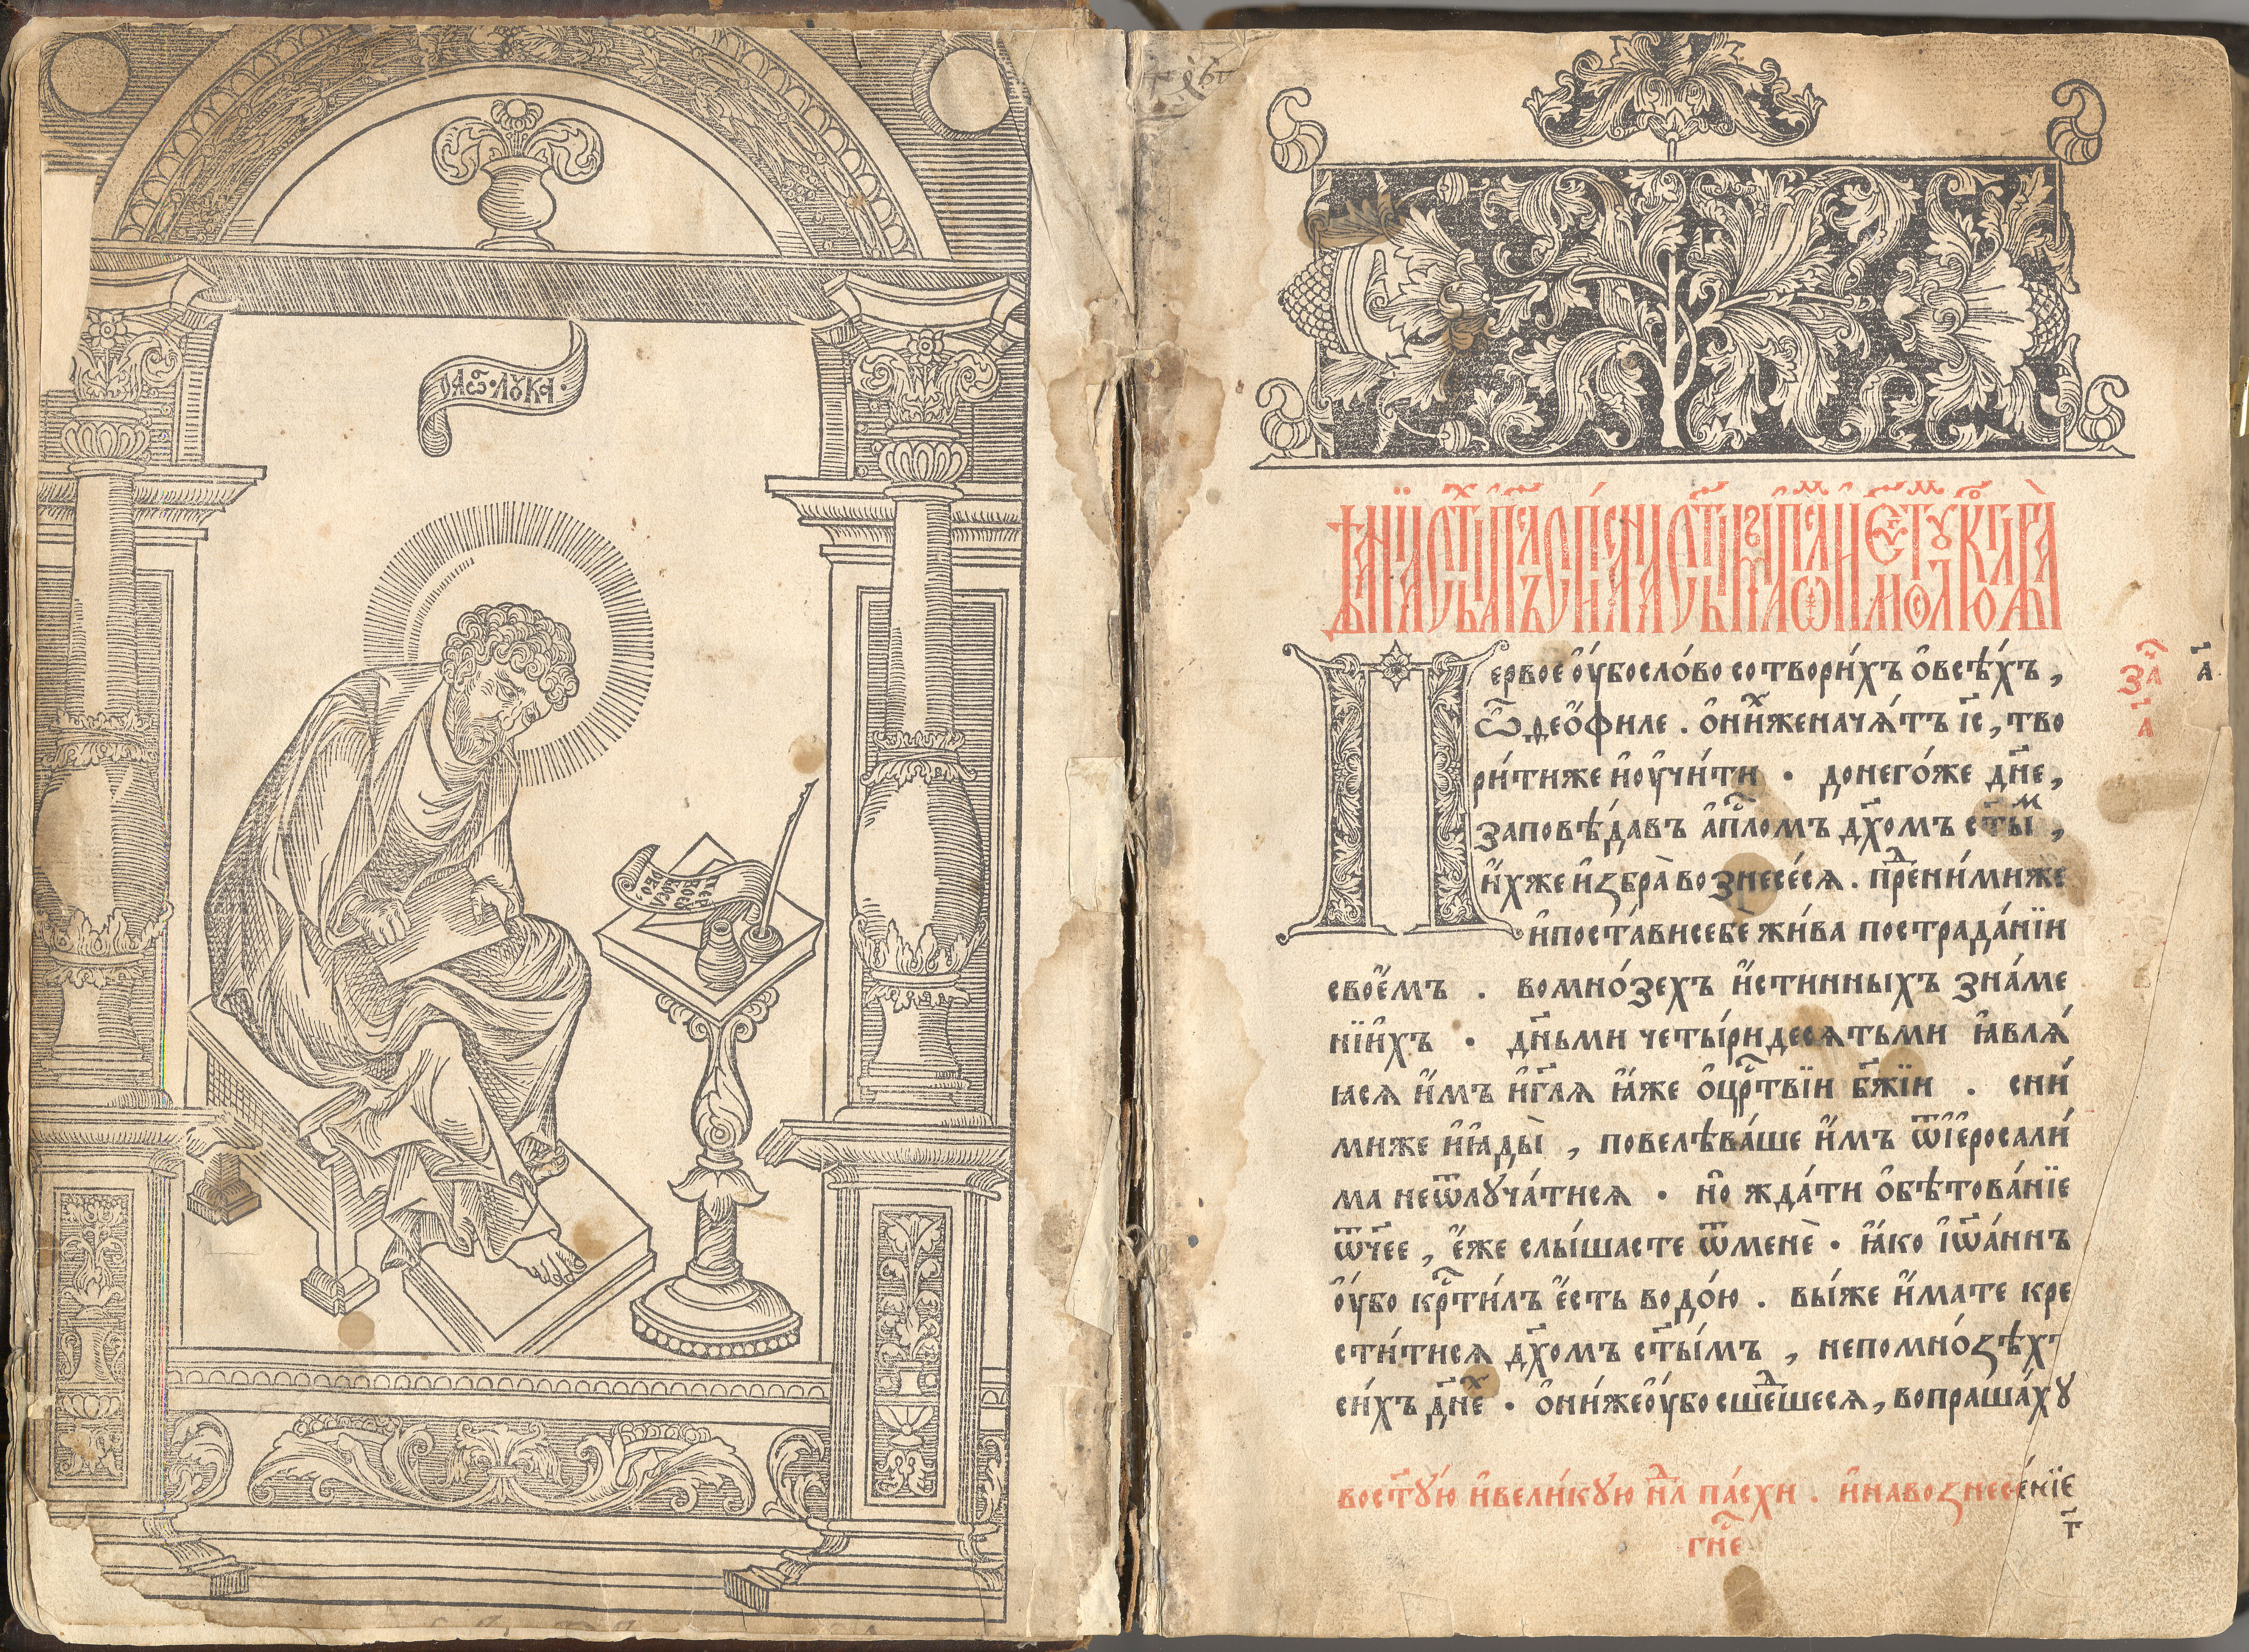 ОАГ҃Ѿ · ЛУКА ·
ДѢꙖНІꙖ СТ҃ЫХЪ АПⷭ҇ЛЪ СПИСАНА СТ҃ЫМЪ АПⷭ҇ЛОМЪ И ЕѴⷢ҇ЛИСТОМЪ ЛꙊКОЮ
Первое ᲂу҆́бо сло́во сотвори́хъ ѻ҆ всѣ́хъ,
ѽ ѳео҆́филе . ѻ҆ ни́хже нача́тъ і҃с, тво
ри́тиже и҆ ᲂу҆чи́ти . до него́же дн҃е,
заповѣ́давъ а҆пⷭ҇ломъ дх҃омъ ст҃ыⷨ,
и҆́хже и҆збра̀ вознесе́ся . преⷣ ни́миже
и҆ поста́ви себе жи́ва по страда́нїи
свое҆́мъ . во мно́зехъ и҆́стинныхъ зна́ме
нїи҆хъ . дн҃ьми четы́ридесятьми ꙗ҆вля́
ꙗся и҆́мъ и҆ гл҃я ꙗ҆́же ѻ҆ црⷭ҇твїи бж҃їи . с ни́
миже и҆ ꙗ҆ды̀ , повелѣва́ше и҆́мъ ѿ і҆ е҆росали́
ма не ѿлꙋча́тися . но҆ жда́ти ѻ҆бѣтова́нїе
ѿч҃ее , е҆́же слы́шасте ѿ менѐ . ꙗ҆́ко і҆ѡа́ннъ
ᲂу҆́бо крⷭ҇ти́лъ е҆́сть водо́ю . вы́же и҆́мате кре
сти́тися дх҃омъ ст҃ы́мъ , не по мно́ѕѣхъ
си́хъ дн҃еⷯ . ѻ҆ни́же ᲂу҆́бо сшеⷣшеся, вопраша́хꙋ
заⷱ҇
а҃
а҃
во ст҃ꙋ́ю и҆ вели́кꙋю нⷣ҇лю па́схи . и҆ на вознесе́нїе
гнⷭ҇е
г҃